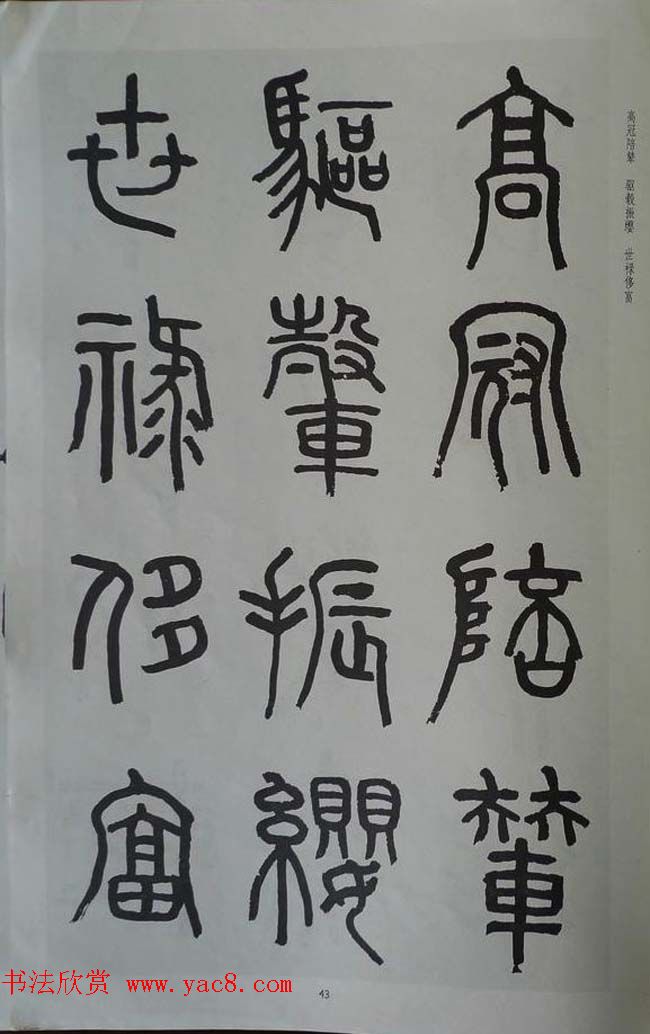 高冠陪輦
驅轂振纓
世祿侈富
高冠陪辇 驱毂振缨 世禄侈富
书法欣赏 www.yac8.com
43